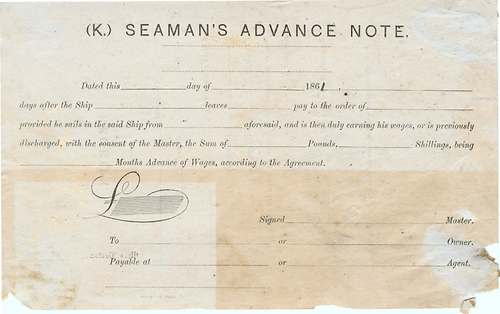 (K.) SEAMAN'S ADVANCE NOTE.
Dated this day of 1861
days after the Ship leaves pay to the order of
provided he sails in the said Ship from aforesaid, and is then duly earning his wages, or is previously
discharged, with the consent of the Master, the Sum of Pounds, Shillings, being
Months Advance of Wages, according to the Agreement.
£
Signed Master.
To or Owner.
Payable at or Agent.